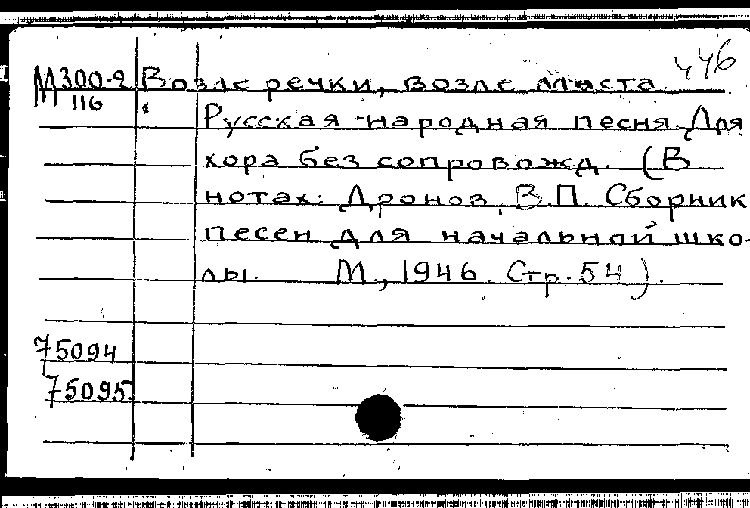 446
М300-2 Возле речки, возле моста
116
Русская народная песня. Для
хора без сопровожд. (В
нотах: Дронов, В.П. Сборник
песен для начальной шко-
лы. М., 1946. Стр. 54).
75094
75095